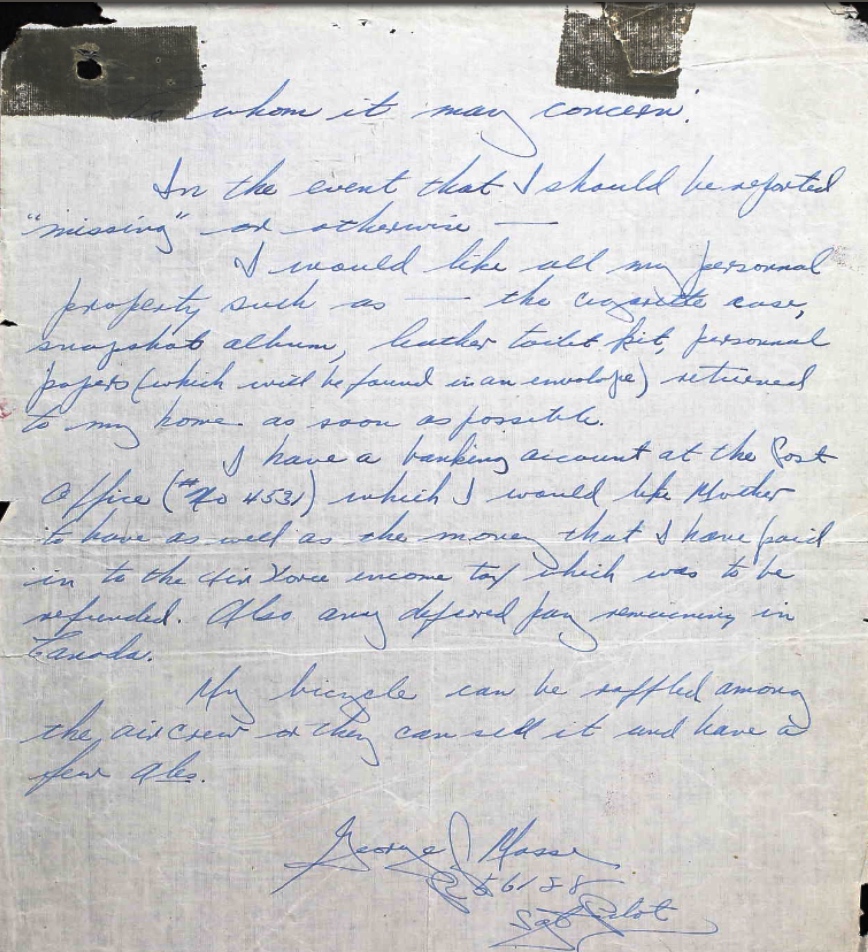 To whom it may concern:
In the event that I should be reported
"missing" or otherwise —
I would like all my personnal
property such as — the cigarette case,
snapshot album, leather toilet kit, personnal
papers (which will be found in an envelope) returned
to my home as soon as possible.
I have a banking account at the Post
Office (#No 4531) which I would like Mother
to have as well as the money that I have paid
in to the Air Force income tax which was to be
refunded. Also any defered pay remaining in
Canada.
My bicycle can be raffled among
the aircrew or they can sell it and have a
few ales.
George J
Sgt Pilot